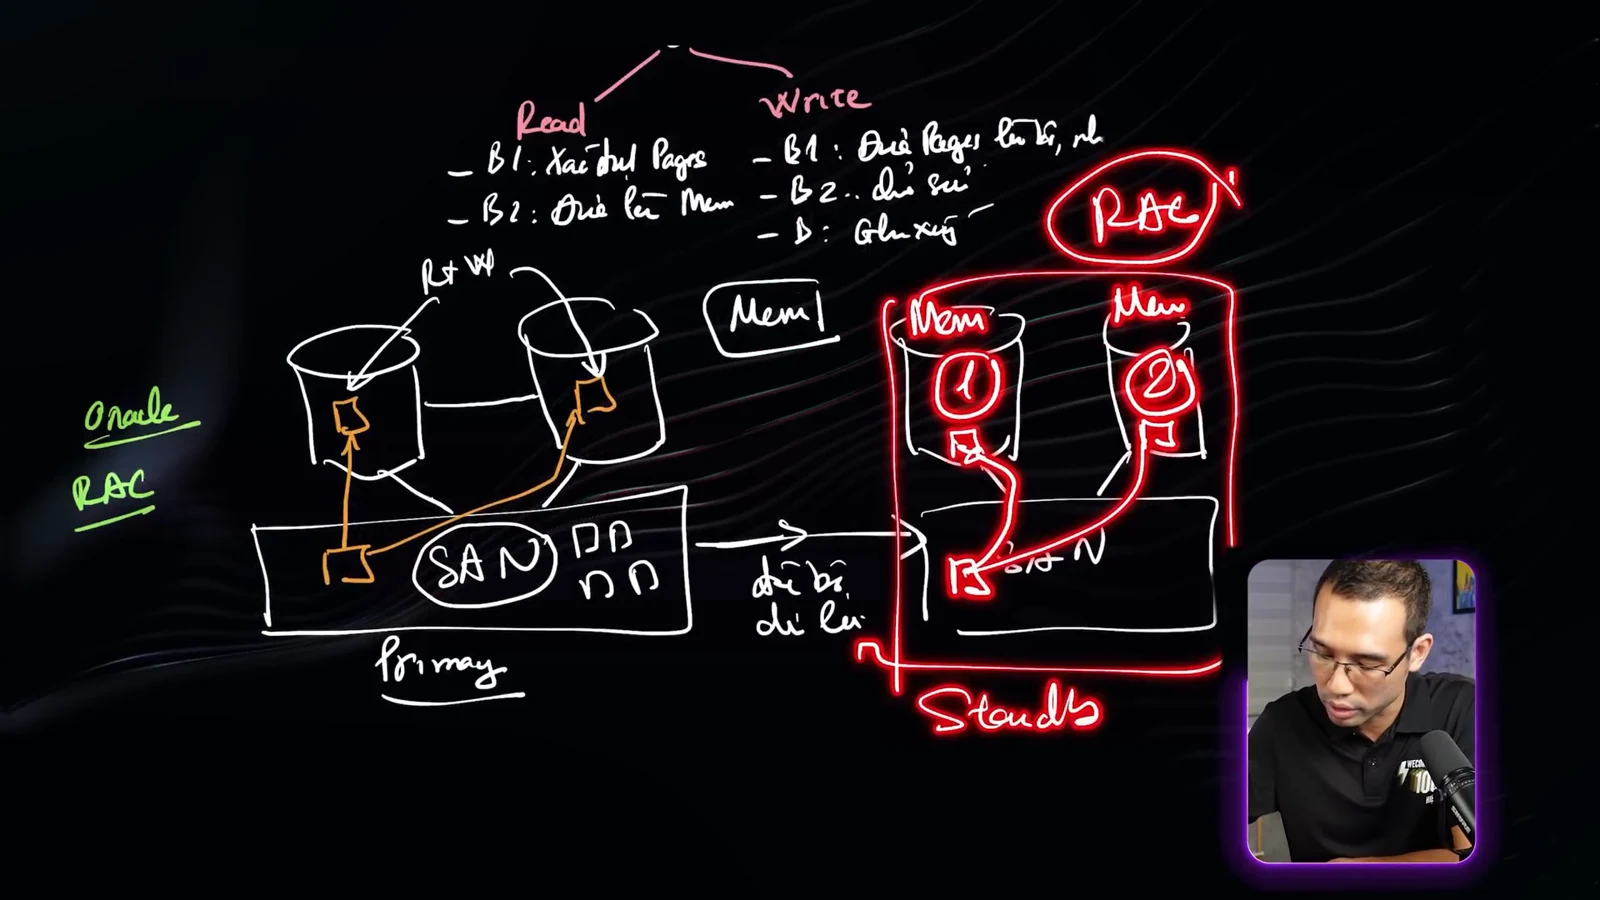 Read
Write
- B1: Xác định Pages
- B2: Đưa lên Mem
- B1: Đưa Pages lên bộ nhớ
- B2: chỉnh sửa
- B: Ghi xuống
RAC
R+W
Mem
Mem
Mem
1
2
Oracle
RAC
SAN
SAN
đồng bộ
dữ liệu
Primary
Standb